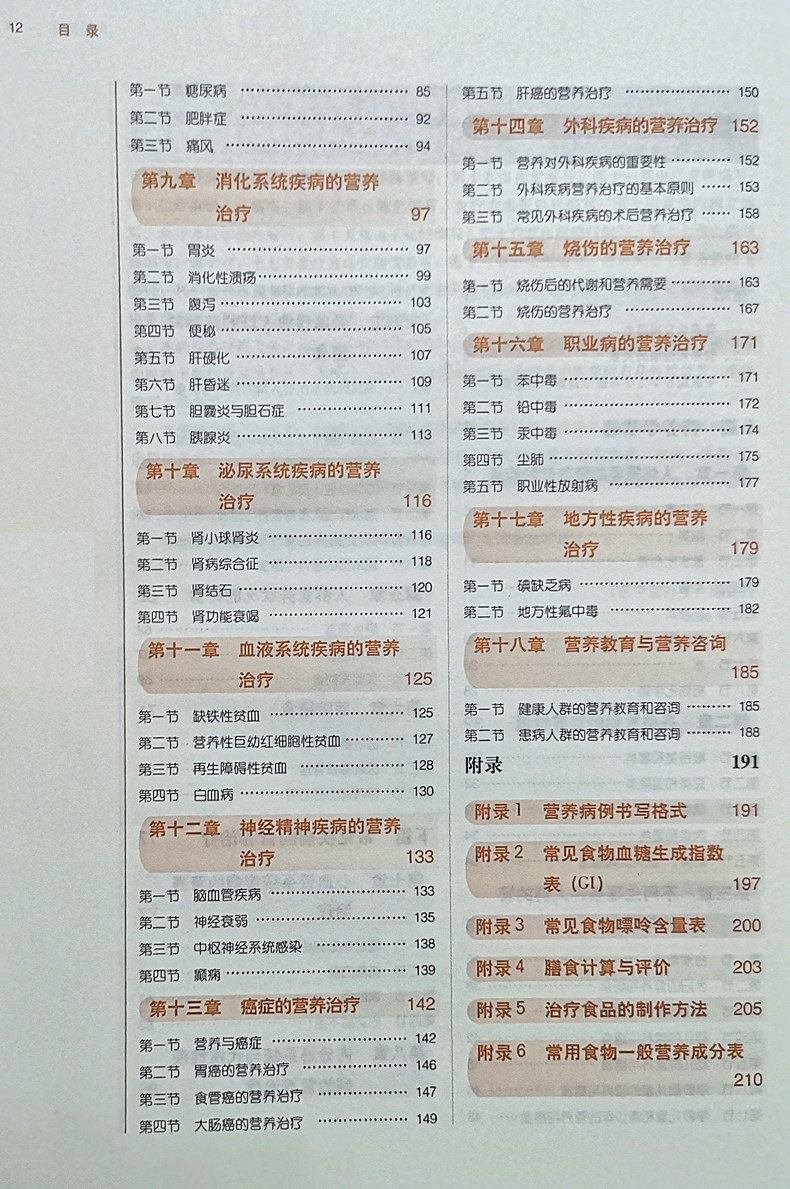 12 目 录
第一节 糖尿病 …… 85
第二节 肥胖症 …… 92
第三节 痛风 …… 94
第九章 消化系统疾病的营养
治疗 97
第一节 胃炎 …… 97
第二节 消化性溃疡 …… 99
第三节 腹泻 …… 103
第四节 便秘 …… 105
第五节 肝硬化 …… 107
第六节 肝昏迷 …… 109
第七节 胆囊炎与胆石症 …… 111
第八节 胰腺炎 …… 113
第十章 泌尿系统疾病的营养
治疗 116
第一节 肾小球肾炎 …… 116
第二节 肾病综合征 …… 118
第三节 肾结石 …… 120
第四节 肾功能衰竭 …… 121
第十一章 血液系统疾病的营养
治疗 125
第一节 缺铁性贫血 …… 125
第二节 营养性巨幼红细胞性贫血 …… 127
第三节 再生障碍性贫血 …… 128
第四节 白血病 …… 130
第十二章 神经精神疾病的营养
治疗 133
第一节 脑血管疾病 …… 133
第二节 神经衰弱 …… 135
第三节 中枢神经系统感染 …… 138
第四节 癫痫 …… 139
第十三章 癌症的营养治疗 142
第一节 营养与癌症 …… 142
第二节 胃癌的营养治疗 …… 146
第三节 食管癌的营养治疗 …… 147
第四节 大肠癌的营养治疗 …… 149
第五节 肝癌的营养治疗 …… 150
第十四章 外科疾病的营养治疗 152
第一节 营养对外科疾病的重要性 …… 152
第二节 外科疾病营养治疗的基本原则 …… 153
第三节 常见外科疾病的术后营养治疗 …… 158
第十五章 烧伤的营养治疗 163
第一节 烧伤后的代谢和营养需要 …… 163
第二节 烧伤的营养治疗 …… 167
第十六章 职业病的营养治疗 171
第一节 苯中毒 …… 171
第二节 铅中毒 …… 172
第三节 汞中毒 …… 174
第四节 尘肺 …… 175
第五节 职业性放射病 …… 177
第十七章 地方性疾病的营养
治疗 179
第一节 碘缺乏病 …… 179
第二节 地方性氟中毒 …… 182
第十八章 营养教育与营养咨询
185
第一节 健康人群的营养教育和咨询 …… 185
第二节 患病人群的营养教育和咨询 …… 188
附录 191
附录1 营养病例书写格式 191
附录2 常见食物血糖生成指数
表（GI） 197
附录3 常见食物嘌呤含量表 200
附录4 膳食计算与评价 203
附录5 治疗食品的制作方法 205
附录6 常用食物一般营养成分表
210